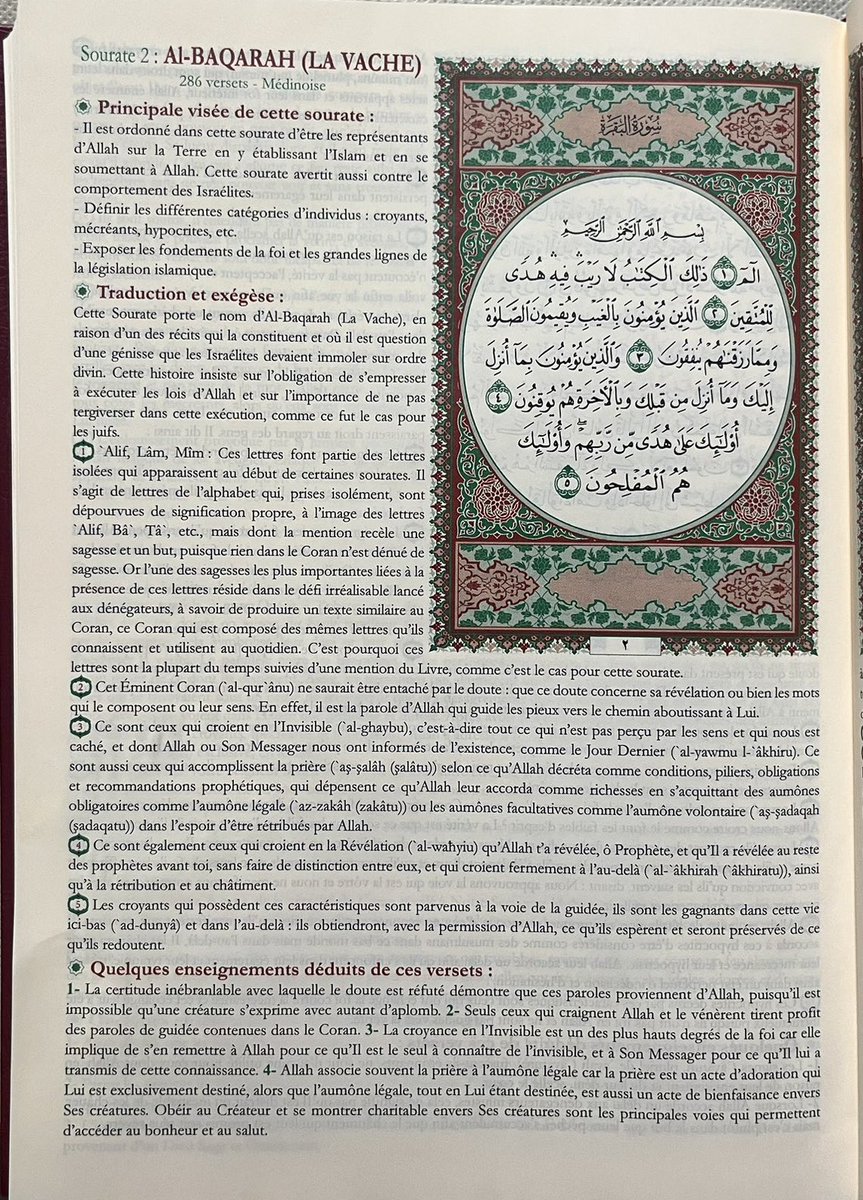 Sourate 2 : Al-BAQARAH (LA VACHE)
286 versets - Médinoise
Principale visée de cette sourate :
- Il est ordonné dans cette sourate d'être les représentants
d'Allah sur la Terre en y établissant l'Islam et en se
soumettant à Allah. Cette sourate avertit aussi contre le
comportement des Israélites.
- Définir les différentes catégories d'individus : croyants,
mécréants, hypocrites, etc.
- Exposer les fondements de la foi et les grandes lignes de
la législation islamique.
Traduction et exégèse :
Cette Sourate porte le nom d'Al-Baqarah (La Vache), en
raison d'un des récits qui la constituent et où il est question
d'une génisse que les Israélites devaient immoler sur ordre
divin. Cette histoire insiste sur l'obligation de s'empresser
à exécuter les lois d'Allah et sur l'importance de ne pas
tergiverser dans cette exécution, comme ce fut le cas pour
les juifs.
1 `Alif, Lâm, Mîm : Ces lettres font partie des lettres
isolées qui apparaissent au début de certaines sourates. Il
s'agit de lettres de l'alphabet qui, prises isolément, sont
dépourvues de signification propre, à l'image des lettres
`Alif, Bâ`, Tâ`, etc., mais dont la mention recèle une
sagesse et un but, puisque rien dans le Coran n'est dénué de
sagesse. Or l'une des sagesses les plus importantes liées à la
présence de ces lettres réside dans le défi irréalisable lancé
aux dénégateurs, à savoir de produire un texte similaire au
Coran, ce Coran qui est composé des mêmes lettres qu'ils
connaissent et utilisent au quotidien. C'est pourquoi ces
lettres sont la plupart du temps suivies d'une mention du Livre, comme c'est le cas pour cette sourate.
سُورَةُ البَقَرَةِ
بِسْمِ اللَّهِ الرَّحْمَٰنِ الرَّحِيمِ
الٓمٓ ١ ذَٰلِكَ الْكِتَٰبُ لَا رَيْبَ ۛ فِيهِ ۛ هُدًى
لِّلْمُتَّقِينَ ٢ الَّذِينَ يُؤْمِنُونَ بِالْغَيْبِ وَيُقِيمُونَ الصَّلَوٰةَ
وَمِمَّا رَزَقْنَٰهُمْ يُنفِقُونَ ٣ وَالَّذِينَ يُؤْمِنُونَ بِمَآ أُنزِلَ
إِلَيْكَ وَمَآ أُنزِلَ مِن قَبْلِكَ وَبِالْءَاخِرَةِ هُمْ يُوقِنُونَ ٤
أُو۟لَٰٓئِكَ عَلَىٰ هُدًى مِّن رَّبِّهِمْ ۖ وَأُو۟لَٰٓئِكَ
هُمُ الْمُفْلِحُونَ ٥
٢
2 Cet Éminent Coran (`al-qur`ânu) ne saurait être entaché par le doute : que ce doute concerne sa révélation ou bien les mots
qui le composent ou leur sens. En effet, il est la parole d'Allah qui guide les pieux vers le chemin aboutissant à Lui.
3 Ce sont ceux qui croient en l'Invisible (`al-ghaybu), c'est-à-dire tout ce qui n'est pas perçu par les sens et qui nous est
caché, et dont Allah ou Son Messager nous ont informés de l'existence, comme le Jour Dernier (`al-yawmu l-`âkhiru). Ce
sont aussi ceux qui accomplissent la prière (`aṣ-ṣalâh (ṣalâtu)) selon ce qu'Allah décréta comme conditions, piliers, obligations
et recommandations prophétiques, qui dépensent ce qu'Allah leur accorda comme richesses en s'acquittant des aumônes
obligatoires comme l'aumône légale (`az-zakâh (zakâtu)) ou les aumônes facultatives comme l'aumône volontaire (`aṣ-ṣadaqah
(ṣadaqatu)) dans l'espoir d'être rétribués par Allah.
4 Ce sont également ceux qui croient en la Révélation (`al-waḥyiu) qu'Allah t'a révélée, ô Prophète, et qu'Il a révélée au reste
des prophètes avant toi, sans faire de distinction entre eux, et qui croient fermement à l'au-delà (`al-`âkhirah (`âkhiratu)), ainsi
qu'à la rétribution et au châtiment.
5 Les croyants qui possèdent ces caractéristiques sont parvenus à la voie de la guidée, ils sont les gagnants dans cette vie
ici-bas (`ad-dunyâ) et dans l'au-delà : ils obtiendront, avec la permission d'Allah, ce qu'ils espèrent et seront préservés de ce
qu'ils redoutent.
Quelques enseignements déduits de ces versets :
1- La certitude inébranlable avec laquelle le doute est réfuté démontre que ces paroles proviennent d'Allah, puisqu'il est
impossible qu'une créature s'exprime avec autant d'aplomb. 2- Seuls ceux qui craignent Allah et le vénèrent tirent profit
des paroles de guidée contenues dans le Coran. 3- La croyance en l'Invisible est un des plus hauts degrés de la foi car elle
implique de s'en remettre à Allah pour ce qu'Il est le seul à connaître de l'invisible, et à Son Messager pour ce qu'Il lui a
transmis de cette connaissance. 4- Allah associe souvent la prière à l'aumône légale car la prière est un acte d'adoration qui
Lui est exclusivement destiné, alors que l'aumône légale, tout en Lui étant destinée, est aussi un acte de bienfaisance envers
Ses créatures. Obéir au Créateur et se montrer charitable envers Ses créatures sont les principales voies qui permettent
d'accéder au bonheur et au salut.